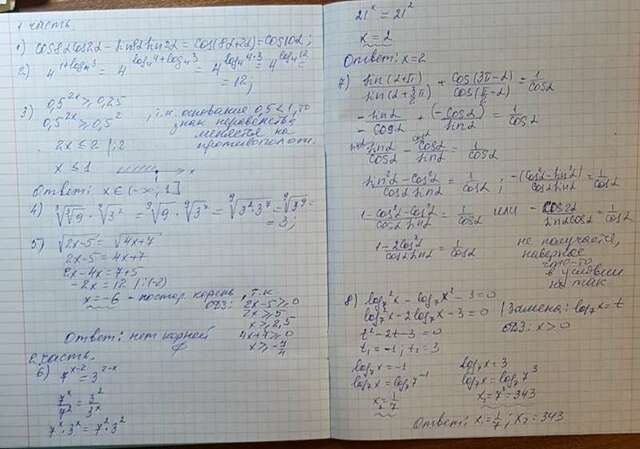 1 часть.
1) cos8α cos2α − sin8α sin2α = cos(8α+2α) = cos10α;
2) 4^(1+log₄3) = 4^(log₄4+log₄3) = 4^(log₄4·3) = 4^(log₄12) =
= 12;
3) 0,5^(2x) ≥ 0,25
0,5^(2x) ≥ 0,5² ; т.к. основание 0,5<1, то
знак неравенства
меняется на
противополож.
2x ≤ 2 |:2
x ≤ 1
Ответ: x ∈ (−∞; 1]
4) ⁹√9 · ⁹√3⁷ = ⁹√(3²·3⁷) = ⁹√3⁹ =
= 3;
5) √(2x−5) = √(4x+7)
2x−5 = 4x+7
2x−4x = 7+5
−2x = 12 |:(−2)
x = −6 - постор. корень, т.к.
ОДЗ: 2x−5 ≥ 0
2x ≥ 5
x ≥ 2,5
4x+7 ≥ 0
x ≥ −7/4
Ответ: нет корней
2 часть.
6) 7^(x−2) = 3^(2−x)
7^x/7² = 3²/3^x
7^x · 3^x = 7² · 3²
21^x = 21²
x = 2
Ответ: x = 2
7) sin(α+π)/sin(α+3/2π) + cos(3π−α)/cos(π/2−α) = 1/cosα
−sinα/−cosα + (−cosα)/sinα = 1/cosα
sinα/cosα − cosα/sinα = 1/cosα
sin²α−cos²α/cosα sinα = 1/cosα ; −(cos²α−sin²α)/cosα sinα = 1/cosα
1−cos²α−cos²α/cosα sinα = 1/cosα или −cos2α/sinα cosα = 1/cosα
1−2cos²α/cosα sinα = 1/cosα
не получается,
наверное
что-то
в условии
не так
8) log₇²x − log₇x² − 3 = 0
log₇²x − 2log₇x − 3 = 0 | Замена: log₇x = t
t² − 2t − 3 = 0 ОДЗ: x > 0
t₁ = −1; t₂ = 3
log₇x = −1 log₇x = 3
log₇x = log₇7⁻¹ log₇x = log₇7³
x = 1/7 x = 7³ = 343
Ответ: x₁ = 1/7; x₂ = 343